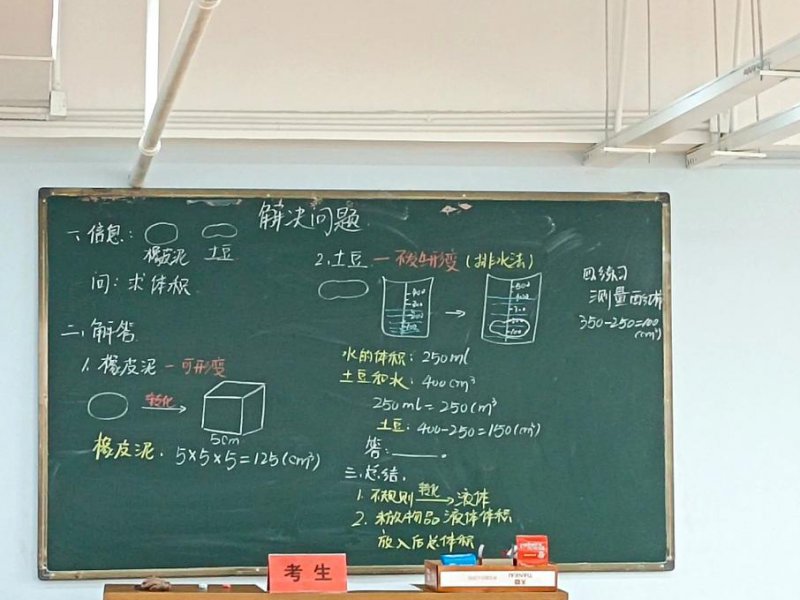 解决问题
一、信息：
橡皮泥 土豆
问：求体积
二、解答
1. 橡皮泥 — 可形变
转化
5cm
橡皮泥：5×5×5=125(cm³)
2. 土豆 — 不可形变 (排水法)
水的体积：250ml
土豆和水：400cm³
250ml=250cm³
土豆：400-250=150(cm³)
答：____。
三、总结
1. 不规则 转化 液体
2. 未放物品 液体体积
放入后总体积
四、练习
测量
350-250=100
(cm³)
考生